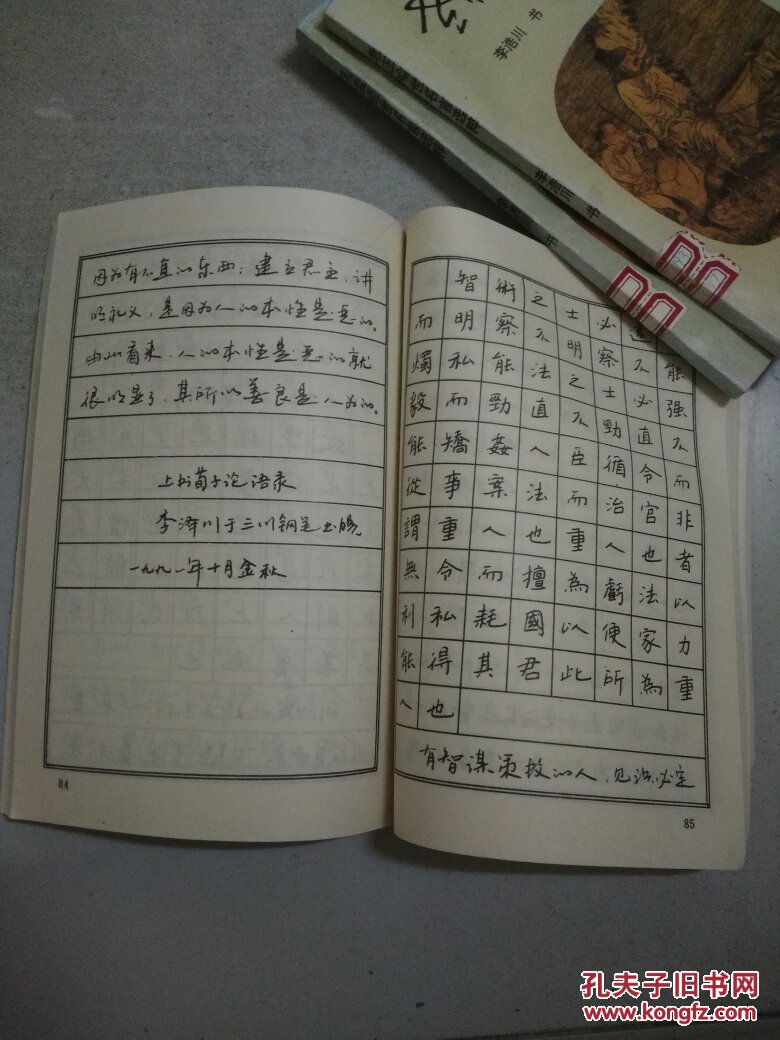 因为有不直的东西；建立君主，讲
明礼义，是因为人的本性是恶的。
由此看来，人的本性是恶的就
很明显了，其所以善良是人为的。
上书荀子论语录
李浩川于三川钢笔书院
一九九一年十月金秋
84
智術之士必遠
而明察不明察不能
燭私能法之士必强
毅而勁直不勁直不
能矯姦人臣循令而
從事案法而治官非
謂重人也重人也者
無令而擅為虧法以
利私耗國以便家力
能得其君此所為重
人也
有智谋策投的人，见识必定
85
李浩川 书
李浩川 书
孔夫子旧书网
www.kongfz.com